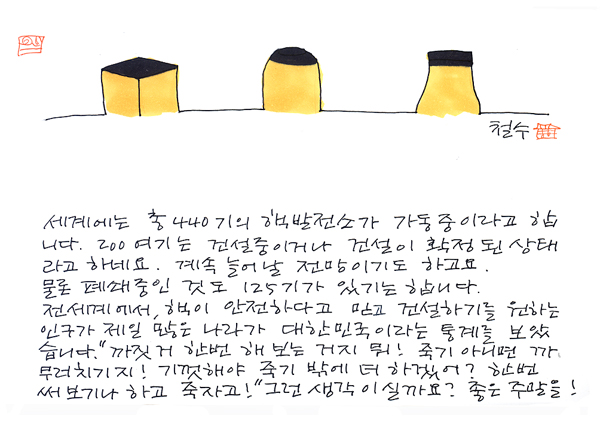 철수
세계에는 총 440기의 핵발전소가 가동중이라고 합
니다. 200여기는 건설중이거나 건설이 확정된 상태
라고 하네요. 계속 늘어날 전망이기도 하고요.
물론 폐쇄중인 것도 125기가 있기는 합니다.
전세계에서, 핵이 안전하다고 믿고 건설하기를 원하는
인구가 제일 많은 나라가 대한민국이라는 통계를 보았
습니다. "까짓거 한번 해 보는 거지 뭐! 죽기 아니면 까
무러치기지! 기껏해야 죽기 밖에 더 하겠어? 한번
써 보기나 하고 죽자고!" 그런 생각이실까요? 좋은 주말을!